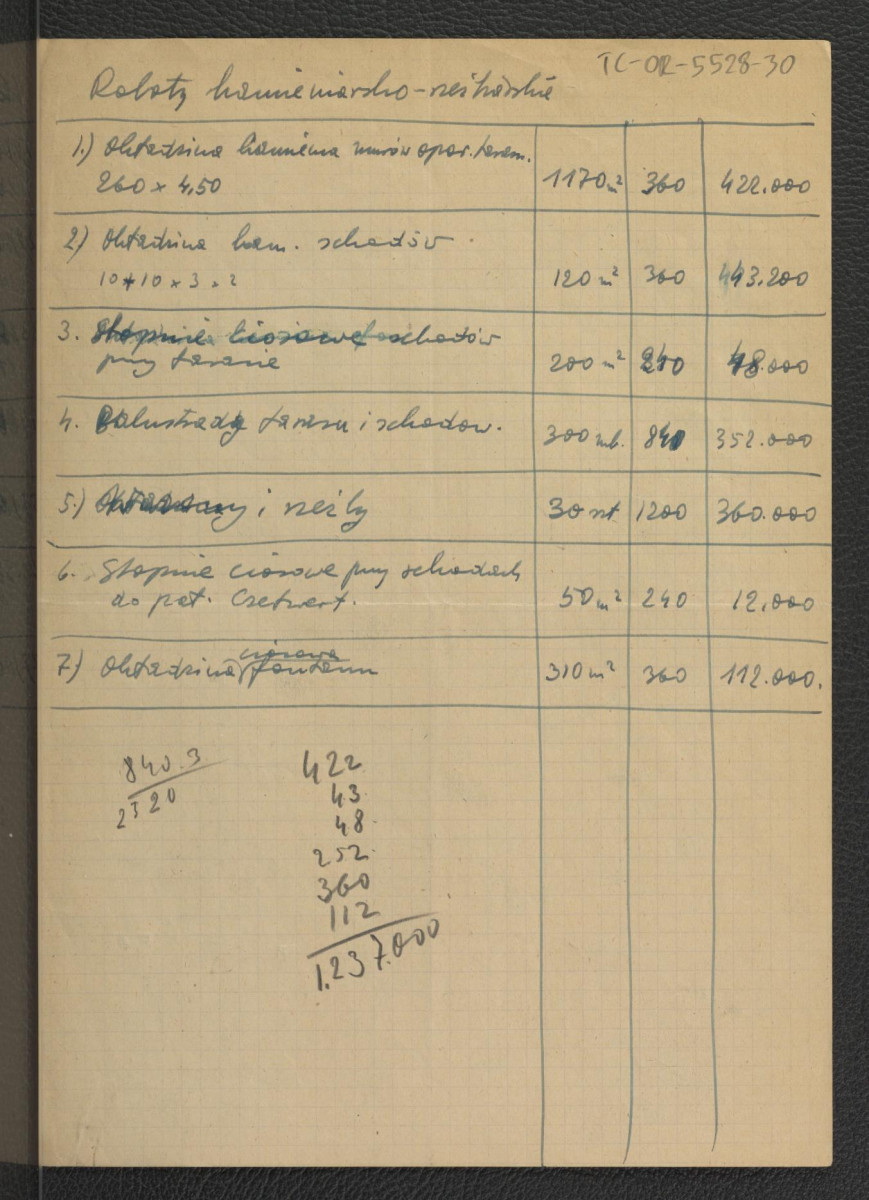 TC-OR-5528-30
Roboty kamieniarsko-rzeźbiarskie
1.) Okładzina kamienna murów opor. taras.
260 x 4,50 1170 m² 360 422.000
2.) Okładzina kam. schodów
10 + 10 x 3 x 2 120 m² 360 43.200
3. Stopnie ciosowe schodów
przy tarasie 200 m² 240 48.000
4. Balustrady tarasu i schodów. 300 mb. 840 352.000
5.) i rzeźby 30 szt 1200 360.000
6. Stopnie ciosowe przy schodach
do pat. Czetwert. 50 m² 240 12.000
7.) Okładzina ciosowa fontann 310 m² 360 112.000.
840.3
2520
422
43
48
252
360
112
1.237.000